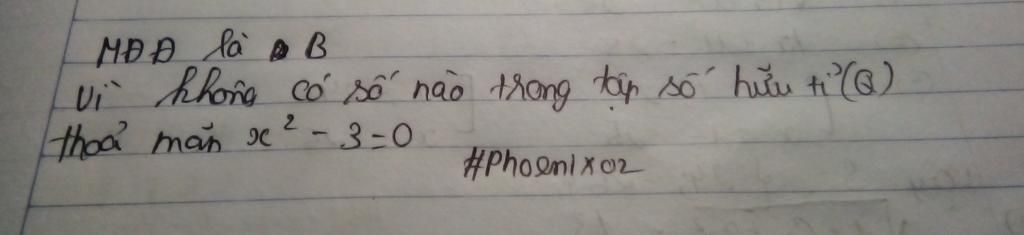 MĐĐ là B
Vì không có số nào trong tập số hữu tỉ (Q)
thoả mãn x² - 3 = 0
#Phoenix02